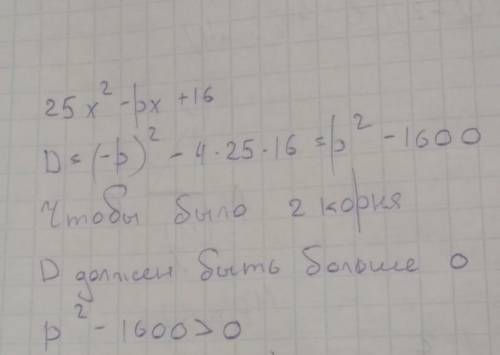 25x² -px +16
D = (-p)² - 4·25·16 = p² - 1600
Чтобы было 2 корня
D должен быть больше 0
p² - 1600 > 0